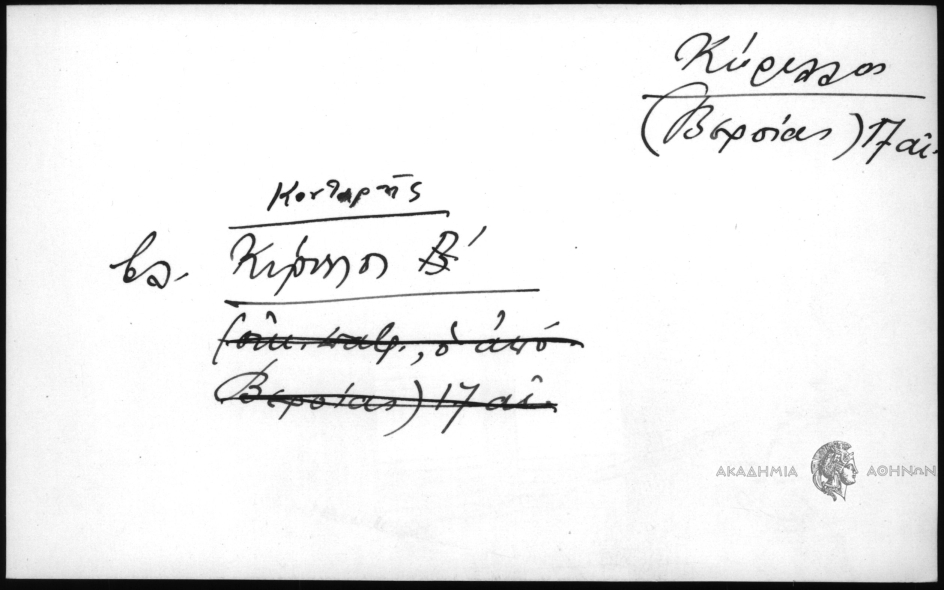 Κύριλλος
(Βεροίας) 17 αἰ.
Κονταρῆς
βλ. Κύριλλος Β΄
(οἰκ. πατρ., ὁ ἀπό
Βεροίας) 17 αἰ.
ΑΚΑΔΗΜΙΑ ΑΘΗΝΩΝ